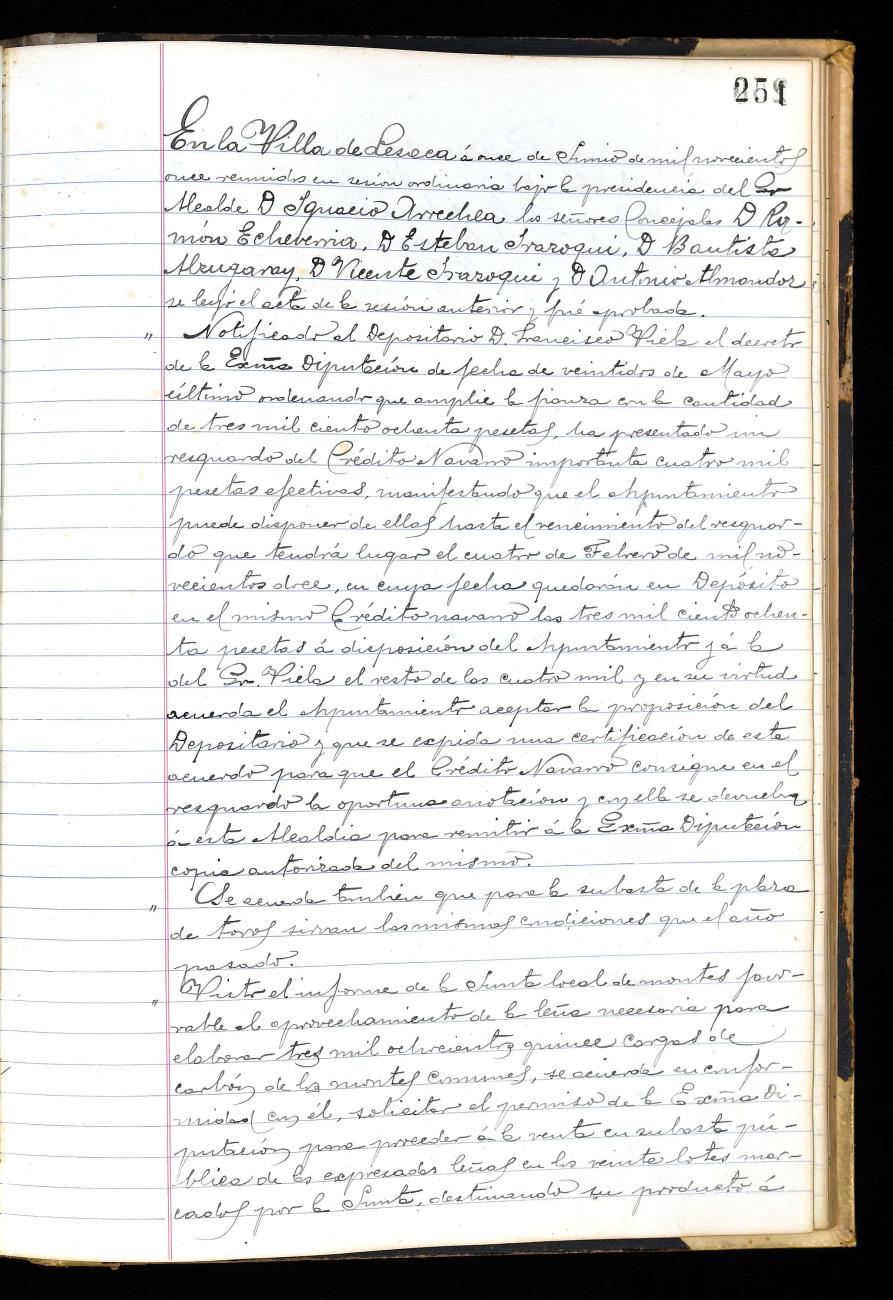 251
En la Villa de Lesaca á once de Junio de mil novecientos
once reunidos en sesión ordinaria bajo la presidencia del Sr
Alcalde D Ignacio Arrechea los señores Concejales D Ra-
món Echeverria, D Esteban Irazoqui, D Bautista
Alzugaray, D Vicente Irazoqui y D Antonio Almandoz
se leyó el acta de la sesión anterior y fué aprobada.
" Notificado al Depositario D. Francisco Viela el decreto
de la Exma Diputación de fecha de veintidos de Mayo
último ordenando que amplie la fianza con la cantidad
de tres mil ciento ochenta pesetas, ha presentado un
resguardo del Crédito Navarro importante cuatro mil
pesetas efectivas, manifestando que el Ayuntamiento
puede disponer de ellas hasta el vencimiento del resguar-
do que tendrá lugar el cuatro de Febrero de mil no-
vecientos doce, en cuya fecha quedarán en Depósito
en el mismo Crédito navarro las tres mil ciento ochen-
ta pesetas á disposición del Ayuntamiento y á la
del Sr. Viela el resto de las cuatro mil y en su virtud
acuerda el Ayuntamiento aceptar la proposición del
Depositario y que se expida una certificación de este
acuerdo para que el Crédito Navarro consigne en el
resguardo la oportuna anotación y con ella se devuelva
á esta Alcaldia para remitir á la Exma Diputación
copia autorizada del mismo.
" Se acuerda tambien que para la subasta de la plaza
de toros sirvan las mismas condiciones que el año
pasado.
" Visto el informe de la Junta local de montes favo-
rable al aprovechamiento de la leña necesaria para
elaborar tres mil ochocientas quince cargas de
carbón de los montes comunes, se acuerda en confor-
midad con él, solicitar el permiso de la Exma Di-
putación para proceder á la venta en subasta pú-
blica de las expresadas leñas en los veinte lotes mar-
cados por la Junta, destinando su producto á